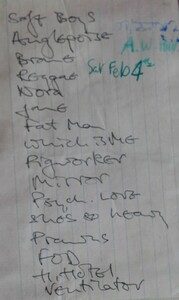 Soft Boys
Anglepoise
Brave
Reggae
Nora
Jane
Fat Man
which is ME
Pigworker
Mirror
Psych. Love
shes so heavy
Prawns
FOD
Hotel
Ventilator
A.W.
Sat Feb 4th